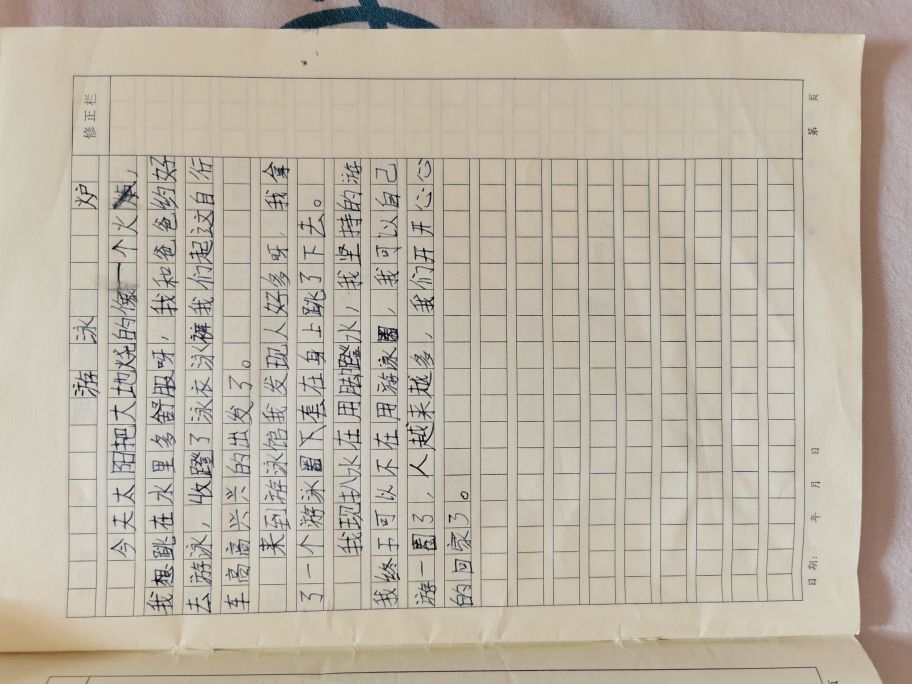 修正栏
游泳
炉
今天太阳把大地烧的像一个火,
我想跳在水里多舒服呀，我和爸爸约好
去游泳，收蹬了泳衣泳裤我们起这自行
车高高兴兴的出发了。
来到游泳馆我发现人好多呀，我拿
了一个游泳圈下套在身上跳了下去。
我现扒水在用脚蹬水，我坚持的游
我终于可以不在用游泳圈，我可以自己
游一圈了，人越来越多，我们开开心心
的回家了。
日期： 年 月 日
第 页